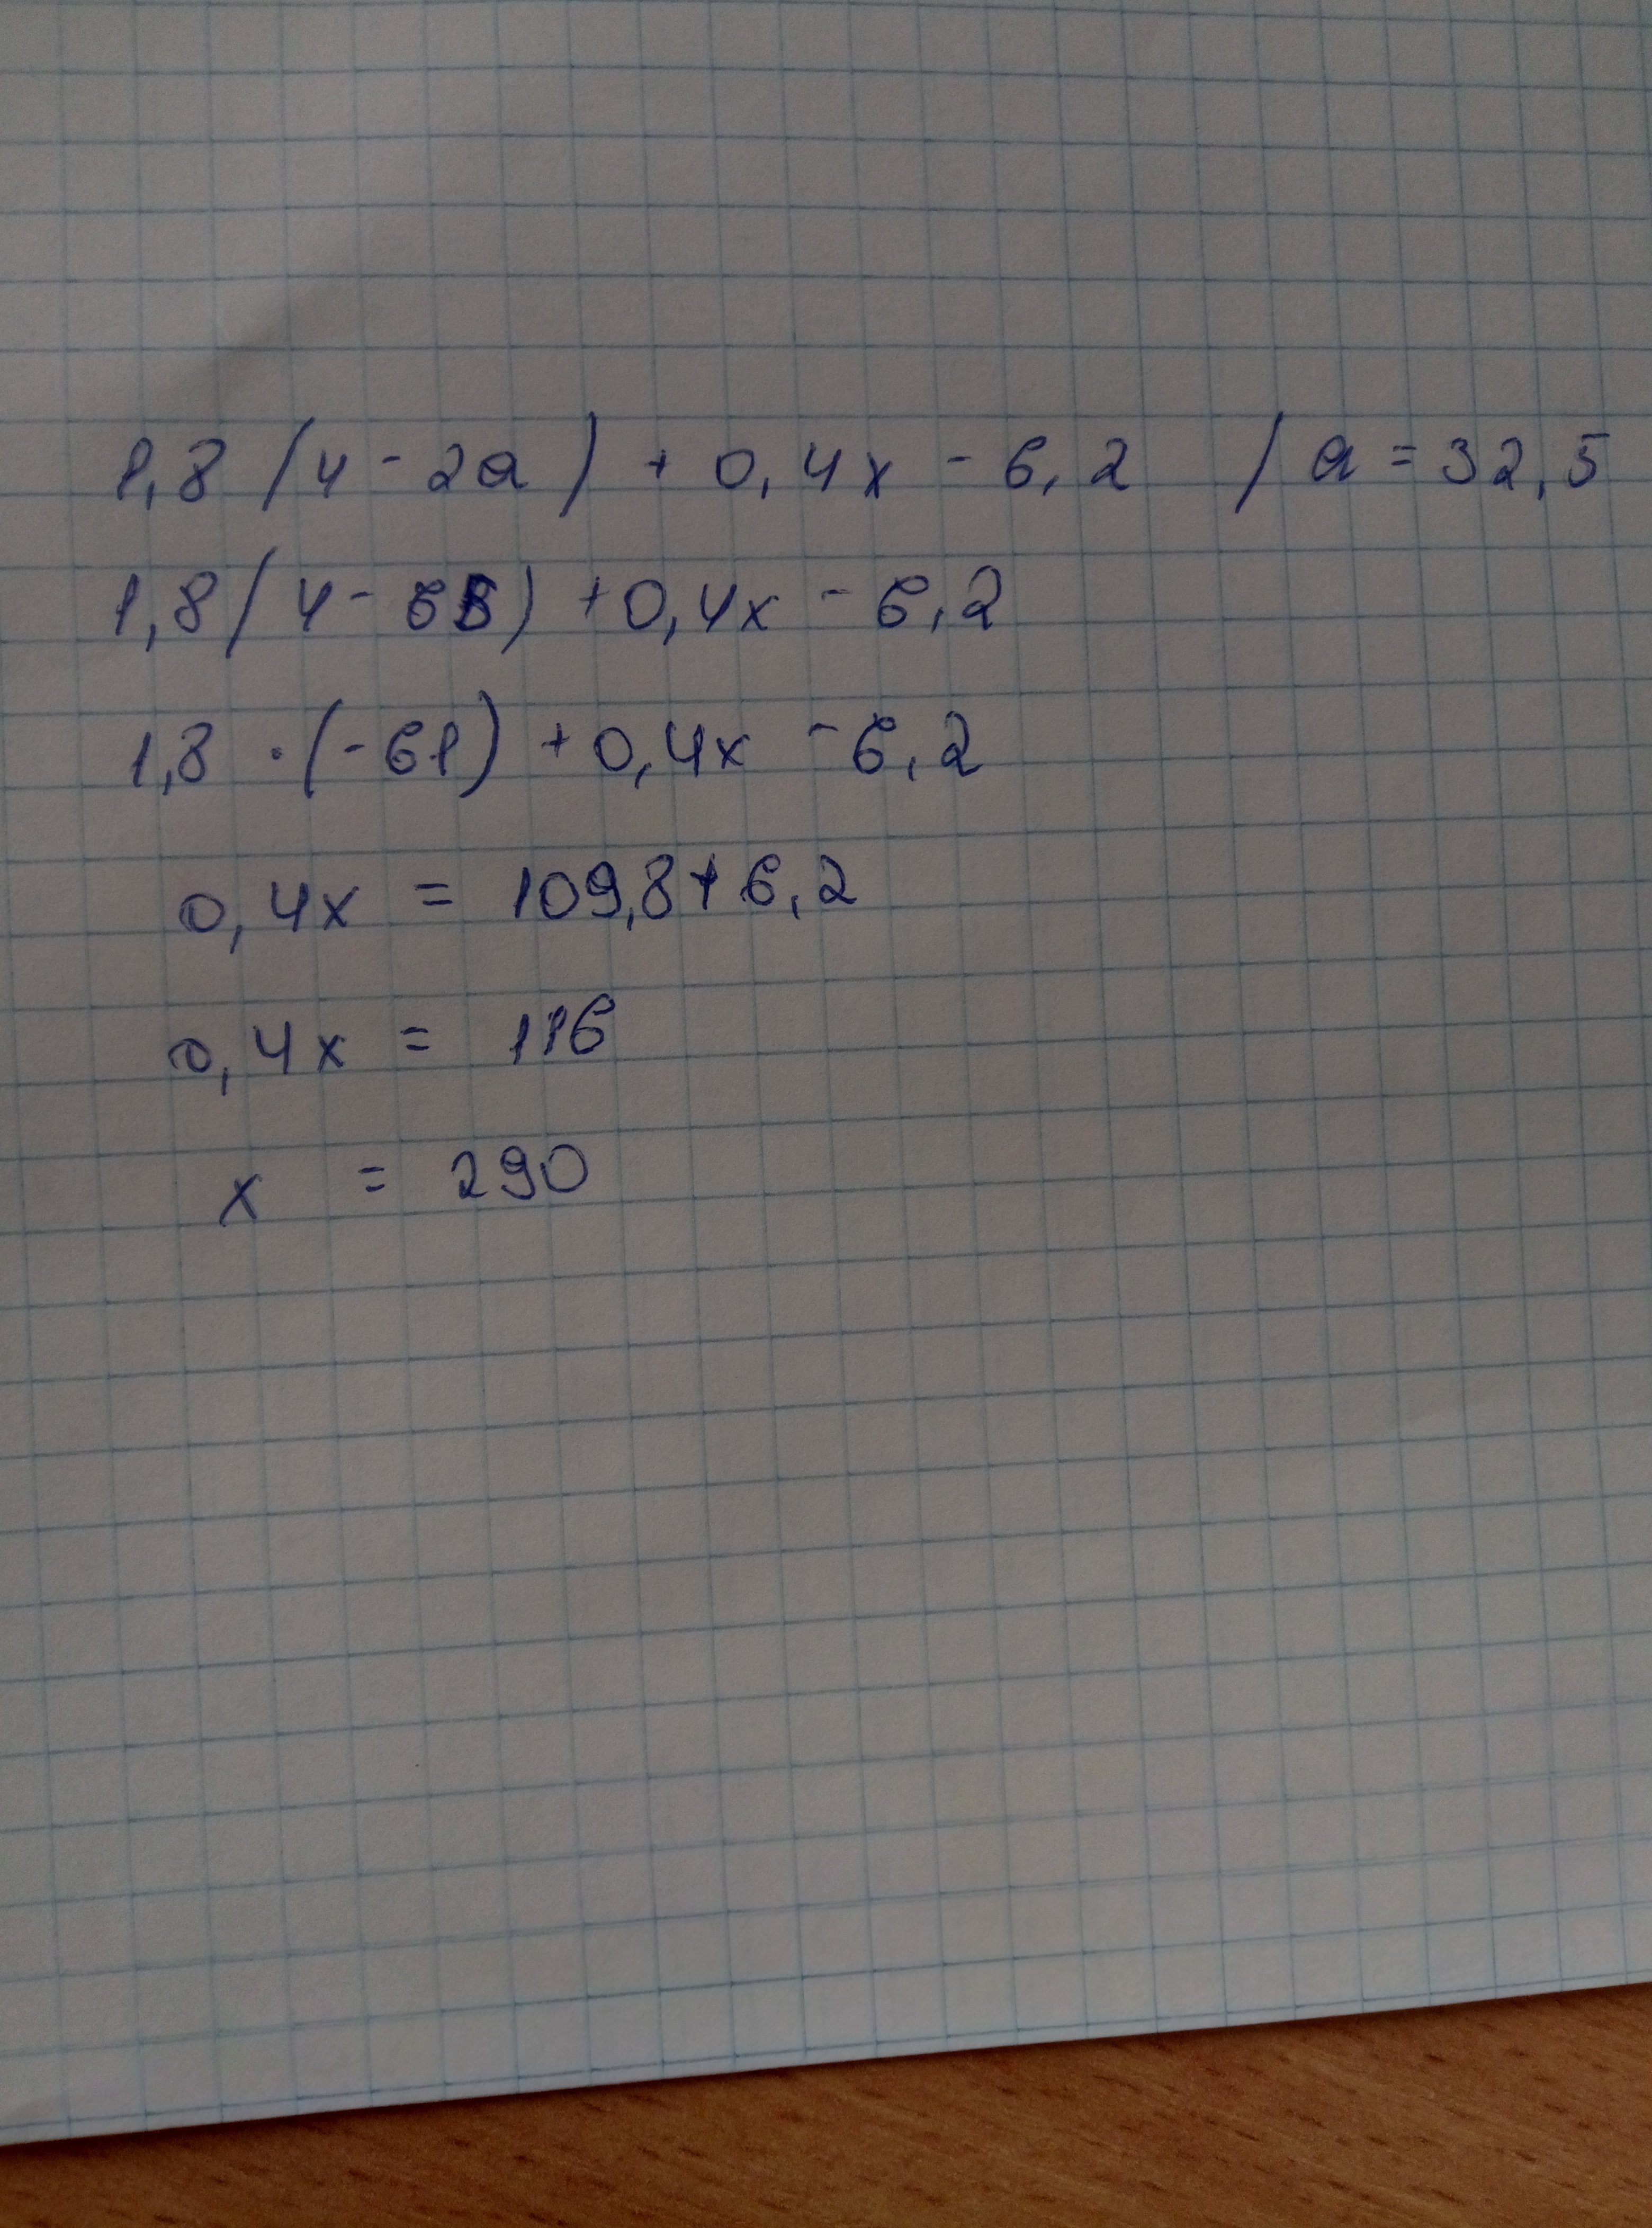 1,8 (4 - 2a) + 0,4x - 6,2 / a = 32,5
1,8 (4 - 65) + 0,4x - 6,2
1,8 · (-61) + 0,4x - 6,2
0,4x = 109,8 + 6,2
0,4x = 116
x = 290